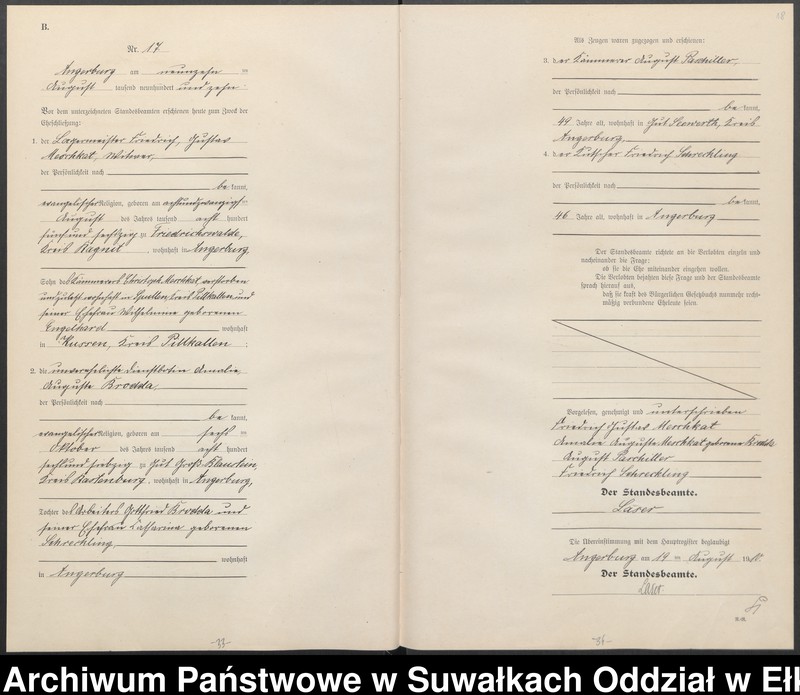 B.
Nr. 17
Angerburg am neunzehn ten
August tausend neunhundert und zehn
Vor dem unterzeichneten Standesbeamten erschienen heute zum Zweck der
Eheschließung:
1. der Lagermeister Friedrich, Gustav
Meschkat, Witwer,
der Persönlichkeit nach
be kannt,
evangelischer Religion, geboren am achtundzwanzigsten
August des Jahres tausend acht hundert
fünfund sechzig zu Friedrichswalde,
Kreis Ragnit, wohnhaft in Angerburg,
Sohn des Kämmerers Christoph Meschkat, verstorben
und zuletzt wohnhaft in Spullen, Kreis Pillkallen und
seiner Ehefrau Wilhelmine geborenen
Engelhard wohnhaft
in Kussen, Kreis Pillkallen
2. die unverehelichte Dienstbotin Amalie
Auguste Brodda,
der Persönlichkeit nach
be kannt,
evangelischer Religion, geboren am sechs ten
Oktober des Jahres tausend acht hundert
sechsund siebzig zu Gut Groß Blaustein,
Kreis Rastenburg, wohnhaft in Angerburg,
Tochter des Arbeiters Gottfried Brodda und
seiner Ehefrau Katharina geborenen
Schreckling,
wohnhaft
in Angerburg
18
Als Zeugen waren zugezogen und erschienen:
3. der Kämmerer August Parschiller,
der Persönlichkeit nach
be kannt,
49 Jahre alt, wohnhaft in Gut Seewerth, Kreis
Angerburg,
4. der Kutscher Friedrich Schreckling
der Persönlichkeit nach
be kannt,
46 Jahre alt, wohnhaft in Angerburg
Der Standesbeamte richtete an die Verlobten einzeln und
nacheinander die Frage:
ob sie die Ehe miteinander eingehen wollen.
Die Verlobten bejahten diese Frage und der Standesbeamte
sprach hierauf aus,
daß sie kraft des Bürgerlichen Gesetzbuchs nunmehr recht-
mäßig verbundene Eheleute seien.
Vorgelesen, genehmigt und unterschrieben
Friedrich Gustav Meschkat
Amalie Auguste Meschkat geborene Brodda
August Parschiller
Friedrich Schreckling
Der Standesbeamte.
Laser
Die Übereinstimmung mit dem Hauptregister beglaubigt
Angerburg am 19 ten August 1910.
Der Standesbeamte.
Laser.
-33-
-34-
Archiwum Państwowe w Suwałkach Oddział w Eł